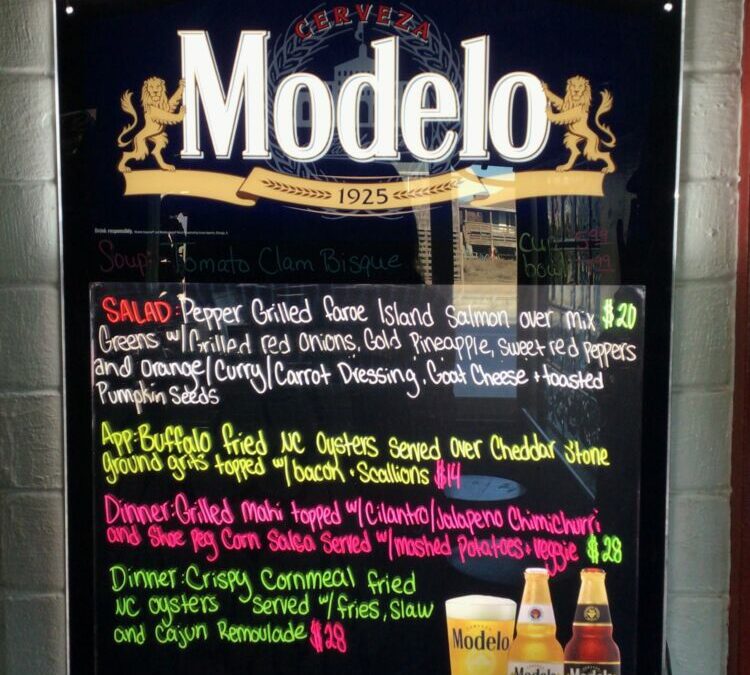 CERVEZA
Modelo
1925
Drink responsibly.
Soup: Tomato Clam Bisque
cup 5.99
bowl
SALAD: Pepper Grilled faroe Island Salmon over mix $20
Greens w/Grilled red onions, Gold Pineapple, sweet red peppers
and orange/Curry/Carrot Dressing, Goat Cheese + toasted
Pumpkin Seeds
App: Buffalo fried NC oysters served over Cheddar Stone
ground grits topped w/bacon + Scallions $14
Dinner: Grilled Mahi topped w/Cilantro/Jalapeno Chimichurri
and Shoe Peg Corn Salsa Served w/mashed potatoes + veggie $28
Dinner: Crispy Cornmeal fried
NC oysters served w/fries, slaw
and Cajun Remoulade $28
Modelo
Modelo
Modelo